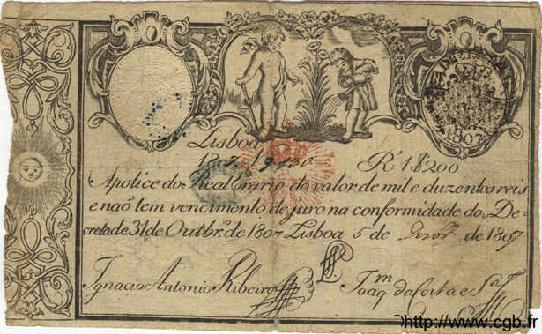 Lisboa
R 1$200
Apolice do Real Erario do valor de mil e duzentos reis
e não tem vencimento de juro na conformidade do De-
creto de 31 de Outbr.o de 180 Lisboa 5 de de 1807
Ignacio Antonio Ribeiro Joaq.m da Costa e S.a
http://www.cgb.fr